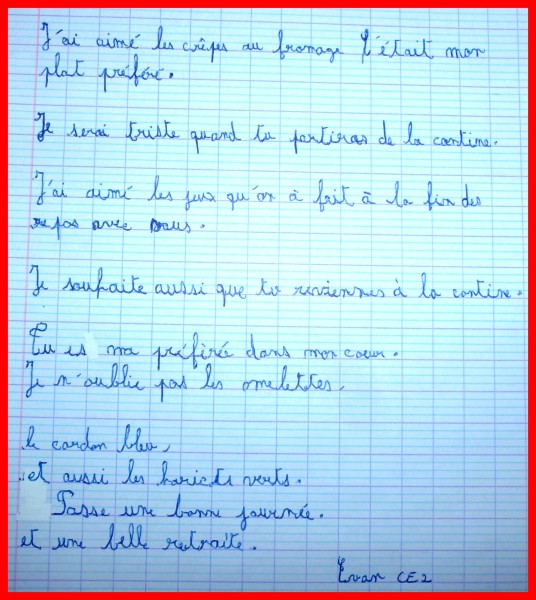 J'ai aimé les crêpes au fromage C'était mon
plat préféré.
Je serai triste quand tu partiras de la cantine.
J'ai aimé les jeux qu'on à fait à la fin des
repas avec vous.
Je souhaite aussi que tu reviennes à la cantine.
Tu es ma préfirée dans mon coeur.
Je n'oublie pas les omelettes,
le cardon bleu,
et aussi les haricots verts.
Passe une bonne journée.
et une belle retraite.
Evan CE2